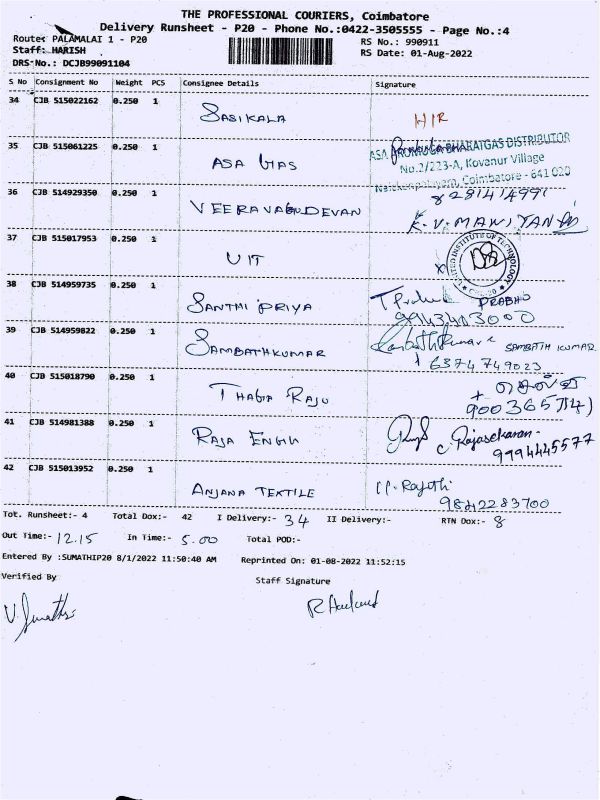 THE PROFESSIONAL COURIERS, Coimbatore
Delivery Runsheet - P20 - Phone No.:0422-3505555 - Page No.:4
Route: PALAMALAI 1 - P20
RS No.: 990911
Staff: HARISH
RS Date: 01-Aug-2022
DRS-No.: DCJB99091104
S No Consignment No Weight PCS Consignee Details Signature
34 CJB 515022162 0.250 1 SASIKALA H/R
35 CJB 515061225 0.250 1 ASA GAS
ASA BHARATGAS DISTRIBUTOR
No.2/223-A, Kovanur Village
Coimbatore - 641 020
36 CJB 514929350 0.250 1 VEERAVAGUDEVAN
8281414991
K.V. MANIYAN
37 CJB 515017953 0.250 1 UIT X
UNITED INSTITUTE OF TECHNOLOGY
38 CJB 514959735 0.250 1 SANTHI PRIYA PRABHO
9943403000
39 CJB 514959822 0.250 1 SAMBATHKUMAR SAMBATH KUMAR
6374749023
40 CJB 515018790 0.250 1 THAGA RAJU
41 CJB 514981388 0.250 1 RAJA ENGG C. Rajasekaran
9994445577
42 CJB 515013952 0.250 1 ANJANA TEXTILE
9842283700
Tot. Runsheet:- 4 Total Dox:- 42 I Delivery:- 34 II Delivery:- RTN Dox:- 8
Out Time:- 12.15 In Time:- 5.00 Total POD:-
Entered By :SUMATHIP20 8/1/2022 11:50:40 AM Reprinted On: 01-08-2022 11:52:15
Verified By Staff Signature